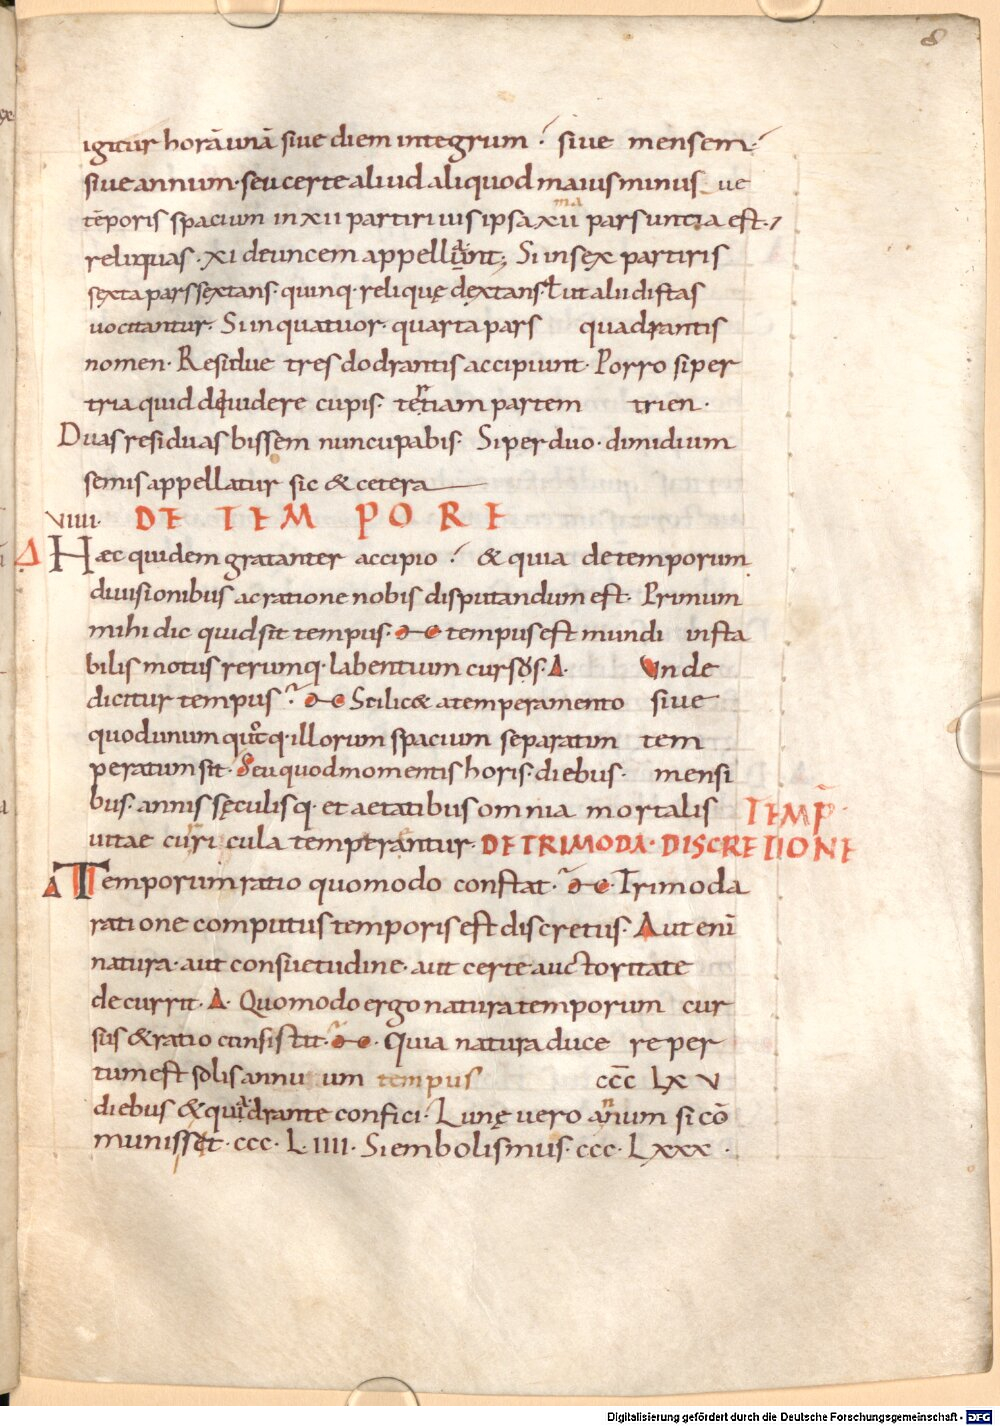 8
igitur horā unā siue diem integrum · siue mensem ·
siue annum · seu certe aliud aliquod maius minus ue
tēporis spacium in xii partiri uis ipsa xii ma pars uncia est ·
reliquas · xi deuncem appellant ; Si in sex partiris
sexta pars sextans · quinq · relique dextans ł ut alii distas
uocitantur · Si in quatuor · quarta pars quadrantis
nomen · Residue tres dodrantis accipiunt · Porro si per
tria quid diuidere cupis · tertiam partem trien ·
Duas residuas bissem nuncupabis · Si per duo · dimidium
semis appellatur sic & cetera
VIIII · DE TEMPORE
Δ Hæc quidem gratanter accipio · & quia de temporum
diuisionibus ac ratione nobis disputandum est · Primum
mihi dic quid sit tempus · tempus est mundi insta
bilis motus rerumq · labentium cursos · Δ · Unde
dicitur tempus · Scilic& a temperamento siue
quod unum quotq · illorum spacium separatim tem
peratum sit · Seu quod momentis horis · diebus · mensi
bus · annis sęculisq · et aetatibus omnia mortalis TEMP̄ ·
uitae curricula temperantur · DE TRIMODA · DISCRETIONE
Δ Temporum ratio quomodo constat · Trimoda
ratione computus temporis est discretus · Aut enī
natura · aut consuetudine · aut certe auctoritate
decurrit · Δ · Quomodo ergo natura temporum cur
sus & ratio consistit · Quia natura duce reper
tum est solis annuum tempus ccc lx v
diebus & quadrante confici · Lunę uero annum si cō
munis sit · ccc · L · IIII · Si embolismus · ccc · Lxxx ·
Digitalisierung gefördert durch die Deutsche Forschungsgemeinschaft - DFG